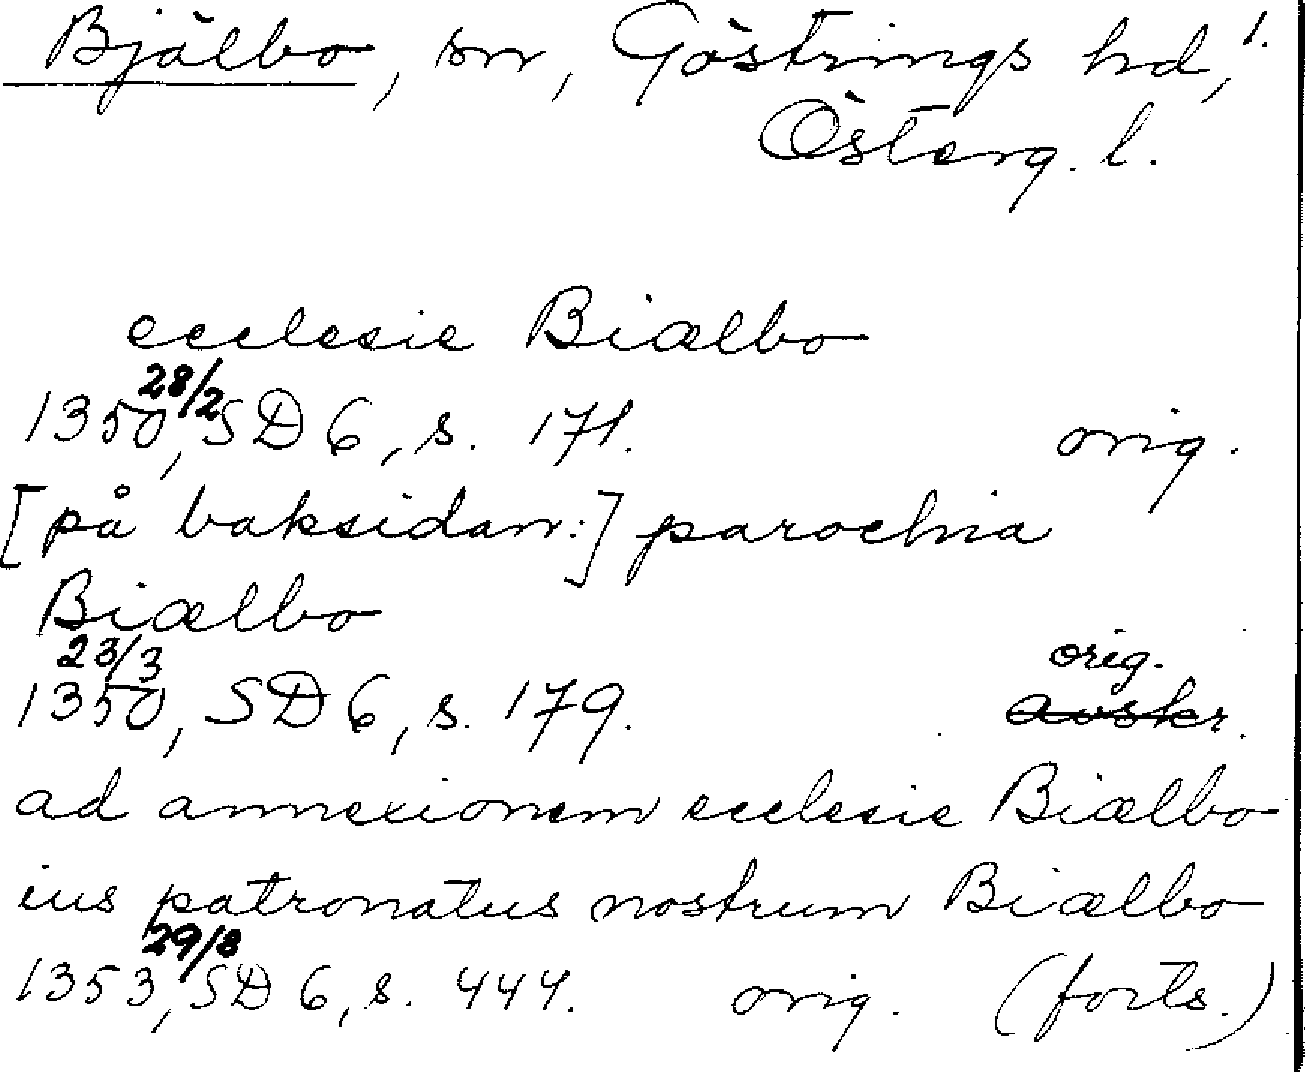 Bjälbo, sn, Göstrings hd, 1.
Österg. l.
ecclesie Biælbo
28/2
1350, SD 6, s. 171. orig.
[på baksidan:] parochia
Biælbo
23/3 orig.
1350, SD 6, s. 179. avskr.
ad annexionem ecclesie Biælbo
ius patronatus nostrum Biælbo
29/8
1353, SD 6, s. 444. orig. (forts.)